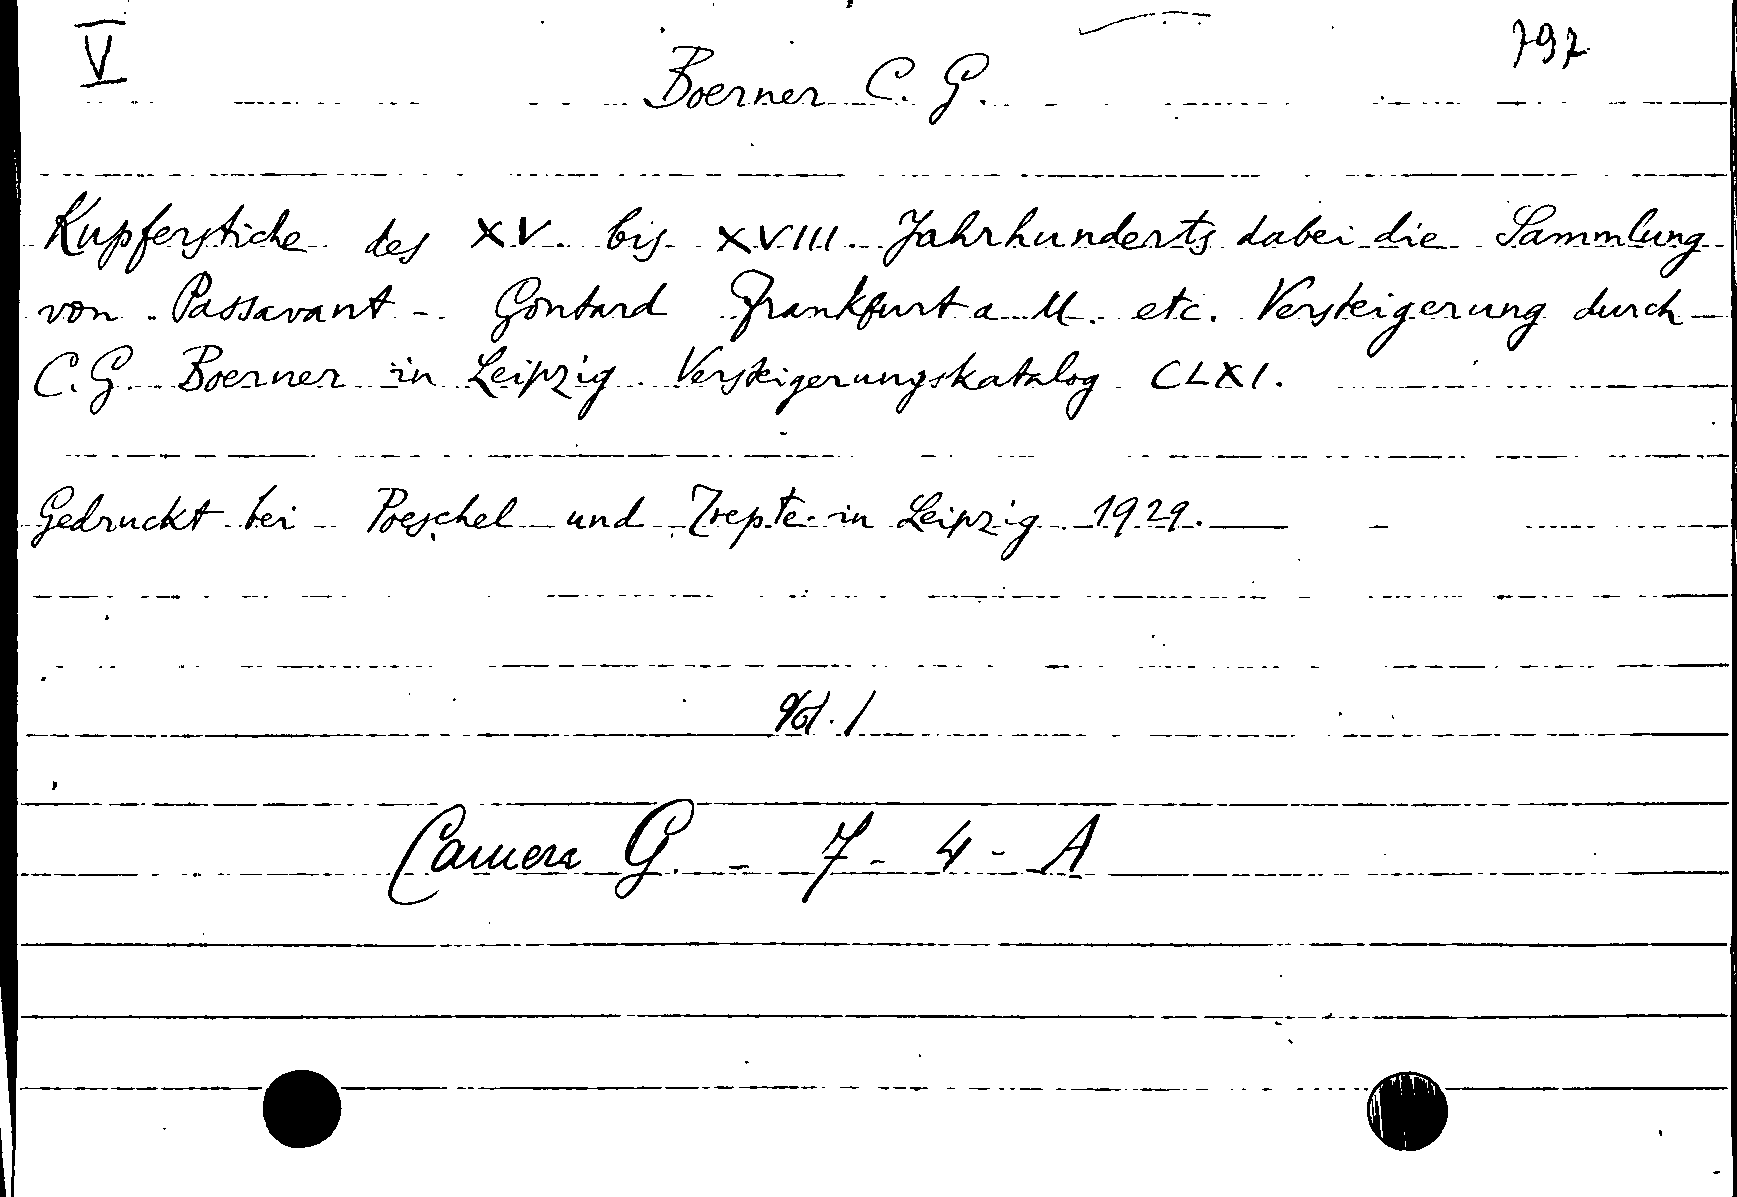 V
797
Boerner C. G.
Kupferstiche des XV. bis XVIII. Jahrhunderts dabei die Sammlung
von Passavant - Gontard Frankfurt a M. etc. Versteigerung durch
C. G. Boerner in Leipzig Versteigerungskatalog CLXI.
Gedruckt bei Poeschel und Trepte in Leipzig 1929.
Vol. 1
Camera G. - 7 - 4 - A